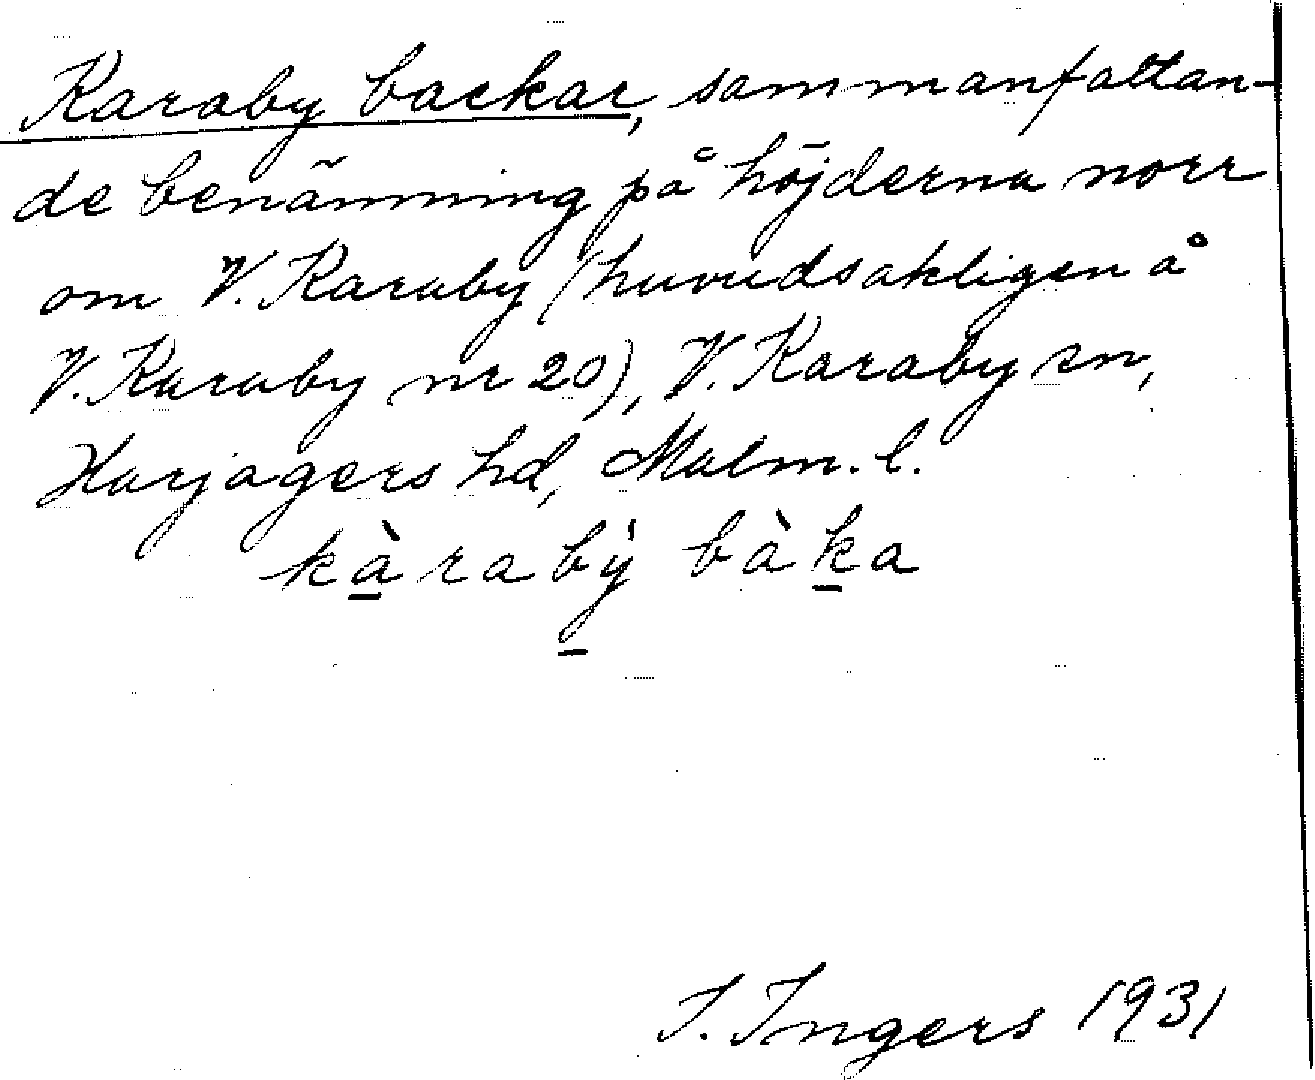 Karaby backar, sammanfattan-
de benämning på höjderna norr
om V. Karaby (huvudsakligen å
V. Karaby nr 20), V. Karaby sn,
Harjagers hd, Malm. l.
kàrabý bàka
I. Ingers 1931